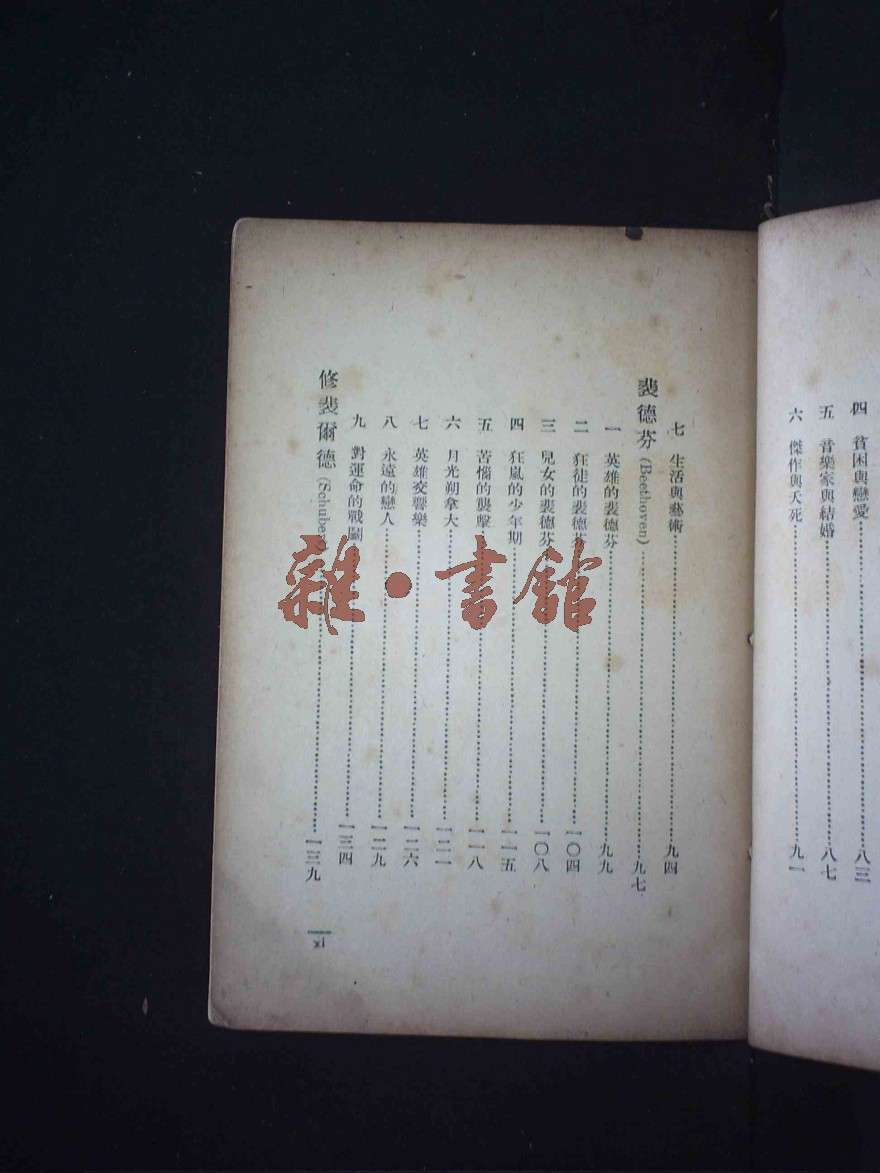 四 貧困與戀愛……八三
五 音樂家與結婚……八七
六 傑作與夭死……九一
七 生活與藝術……九四
裴德芬 (Beethoven)……九七
一 英雄的裴德芬……九九
二 狂徒的裴德芬……一〇四
三 兒女的裴德芬……一〇八
四 狂嵐的少年期……一一五
五 苦惱的襲擊……一一八
六 月光朔拿大……一二一
七 英雄交響樂……一二六
八 永遠的戀人……一二九
九 對運命的戰鬭……一三四
修裴爾德 (Schubert)……一三九
xi
雜·書館